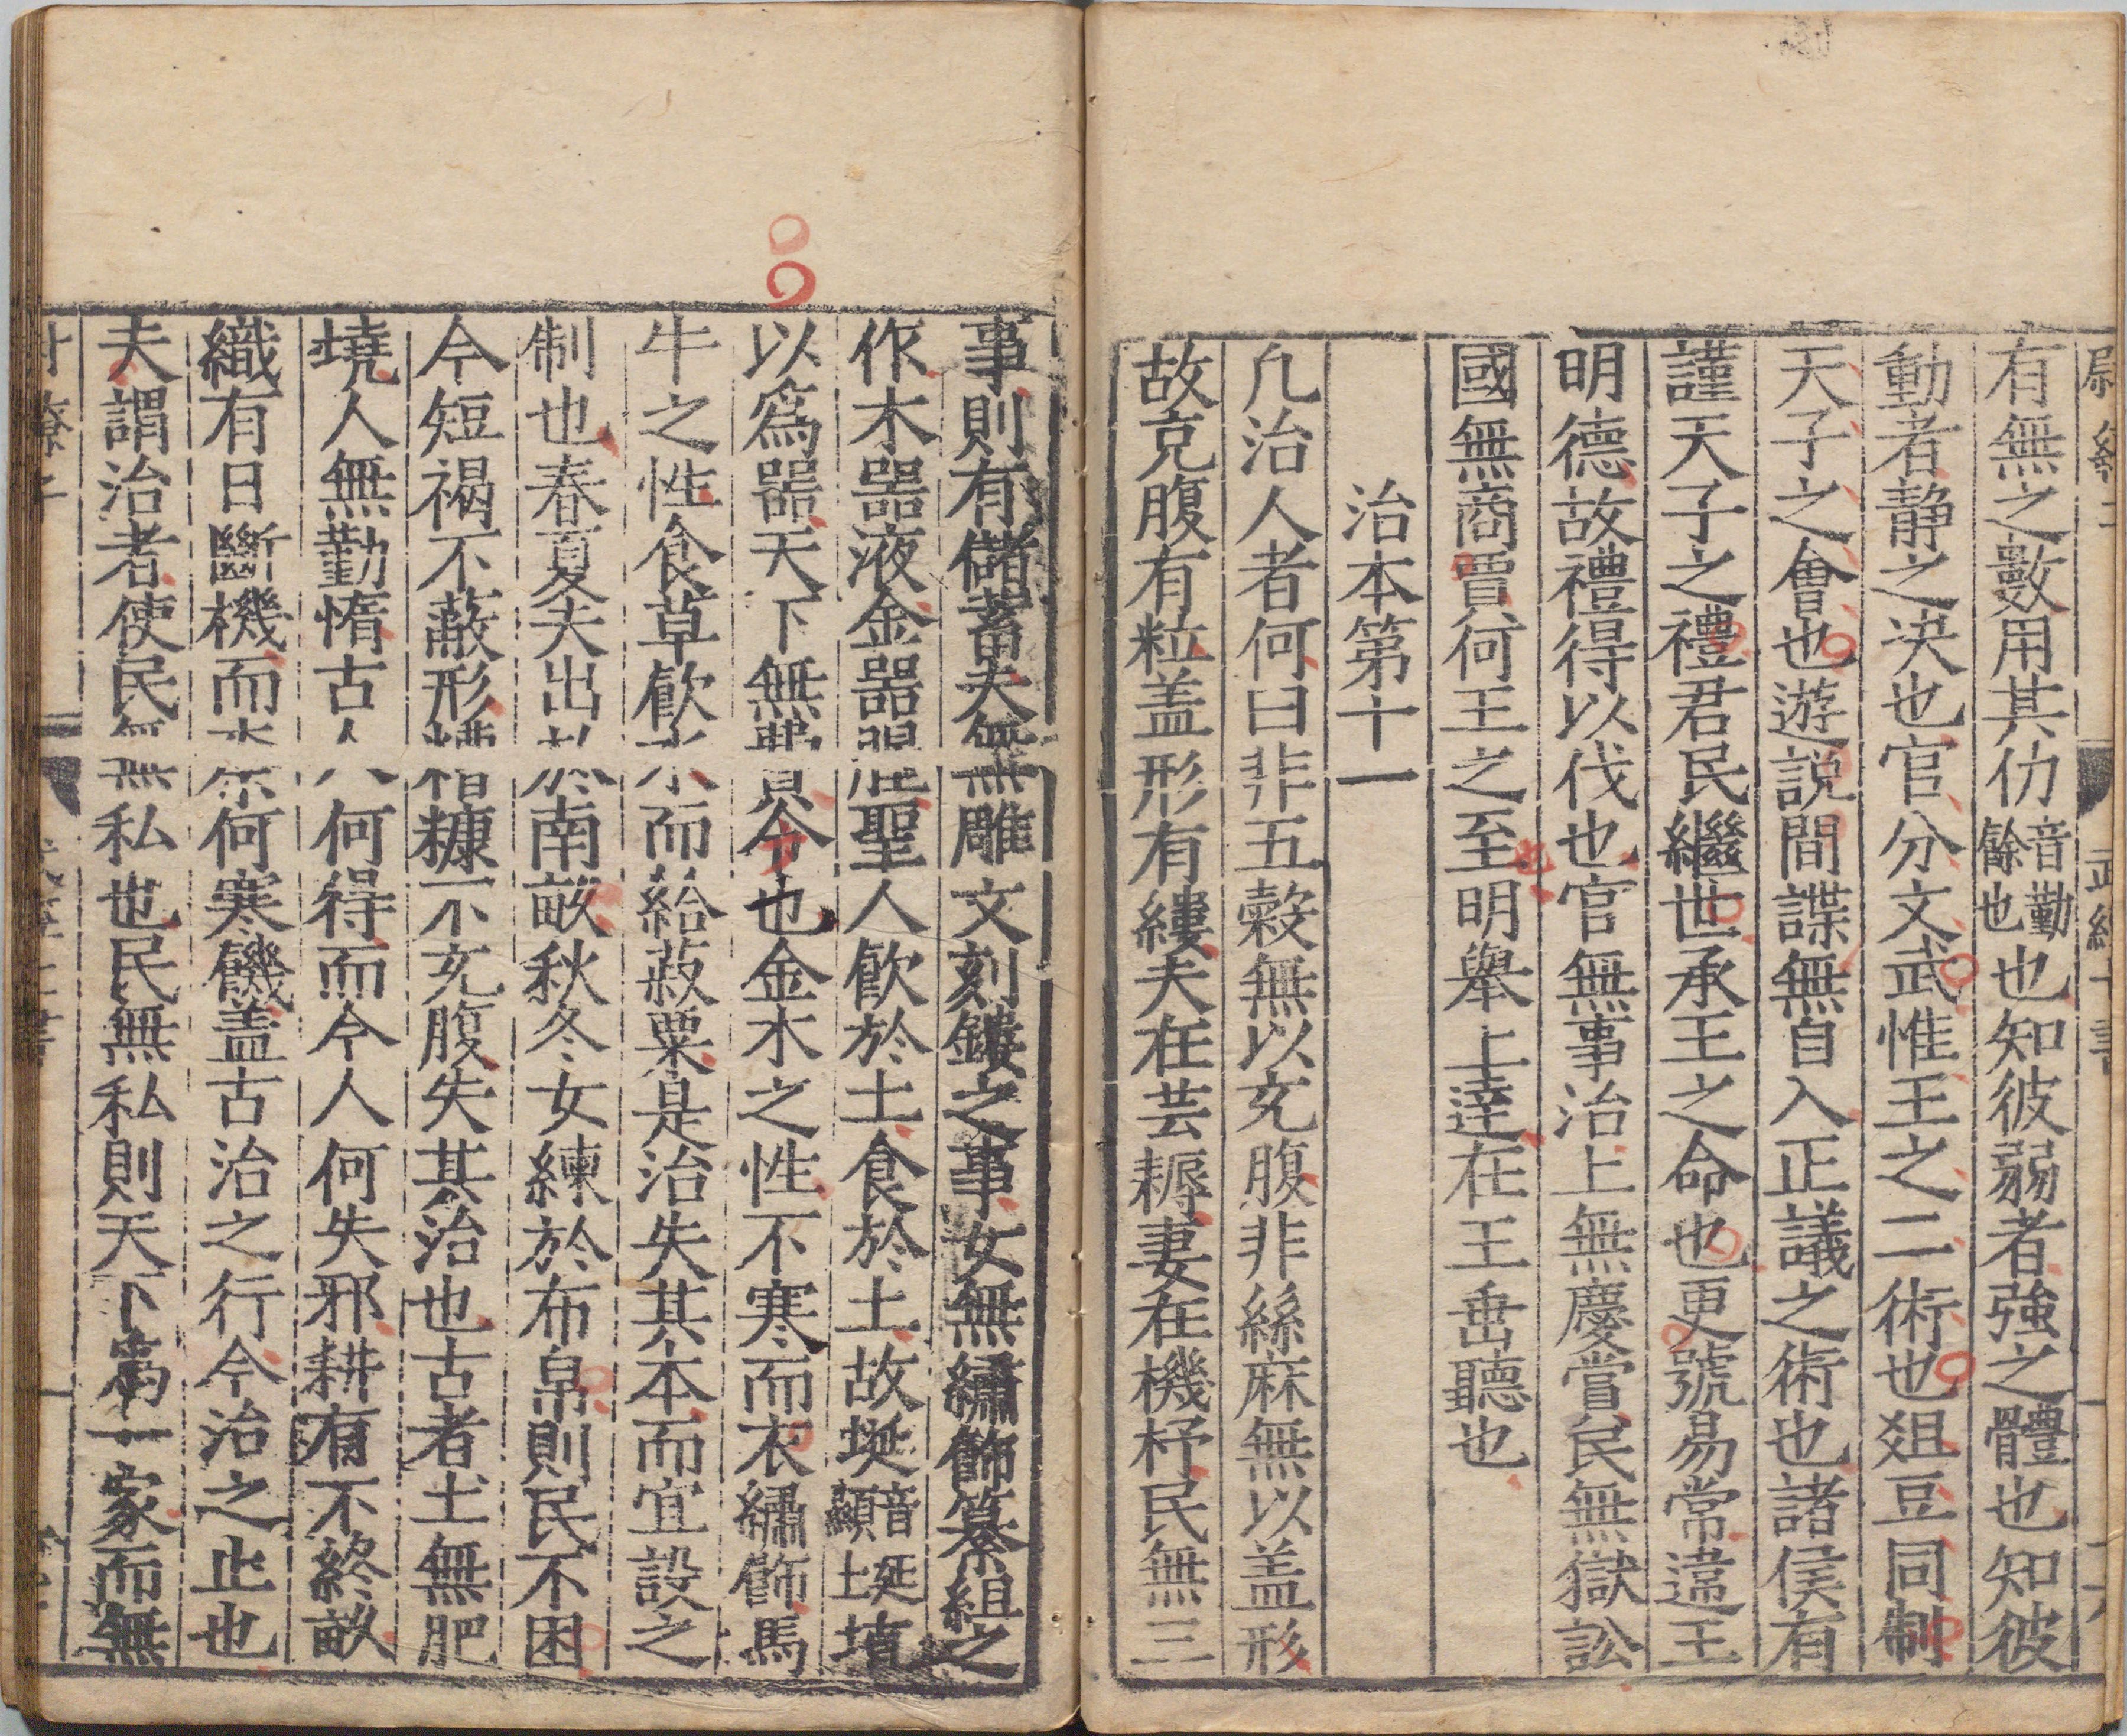 有無之數用其仂音勤餘也也知彼弱者強之體也知彼
動者静之决也官分文武惟王之二術也爼豆同制
天子之會也遊説間諜無自入正議之術也諸侯有
謹天子之禮君民繼世承王之命也更號易常違王
明德故禮得以伐也官無事治上無慶賞民無獄訟
國無商賈何王之至明舉上達在王垂聽也
治本第十一
凢治人者何曰非五穀無以充腹非絲麻無以盖形
故充腹有粒盖形有縷夫在芸耨妻在機杼民無三
事則有儲蓄夫無雕文刻鏤之事女無繡飾纂組之
作木噐液金噐腥聖人飲於土食於土故埏音顯埏土埴
以為噐天下無費今也金木之性不寒而衣繡飾馬
牛之性食草飲水而給菽粟是治失其本而宜設之
制也春夏夫出於南畝秋冬女練於布帛則民不困
今短褐不蔽形糟糠不充腹失其治也古者土無肥
墝人無勤惰古人何得而今人何失邪耕有不終畝
織有日斷機而柰何寒饑盖古治之行今治之止也
夫謂治者使民無私也民無私則天下爲一家而無